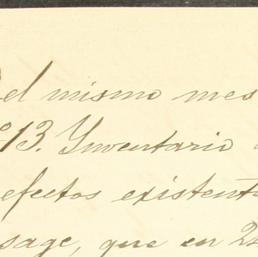 del mismo mes
13. Ynventario
efectos existent
sage, que en 2